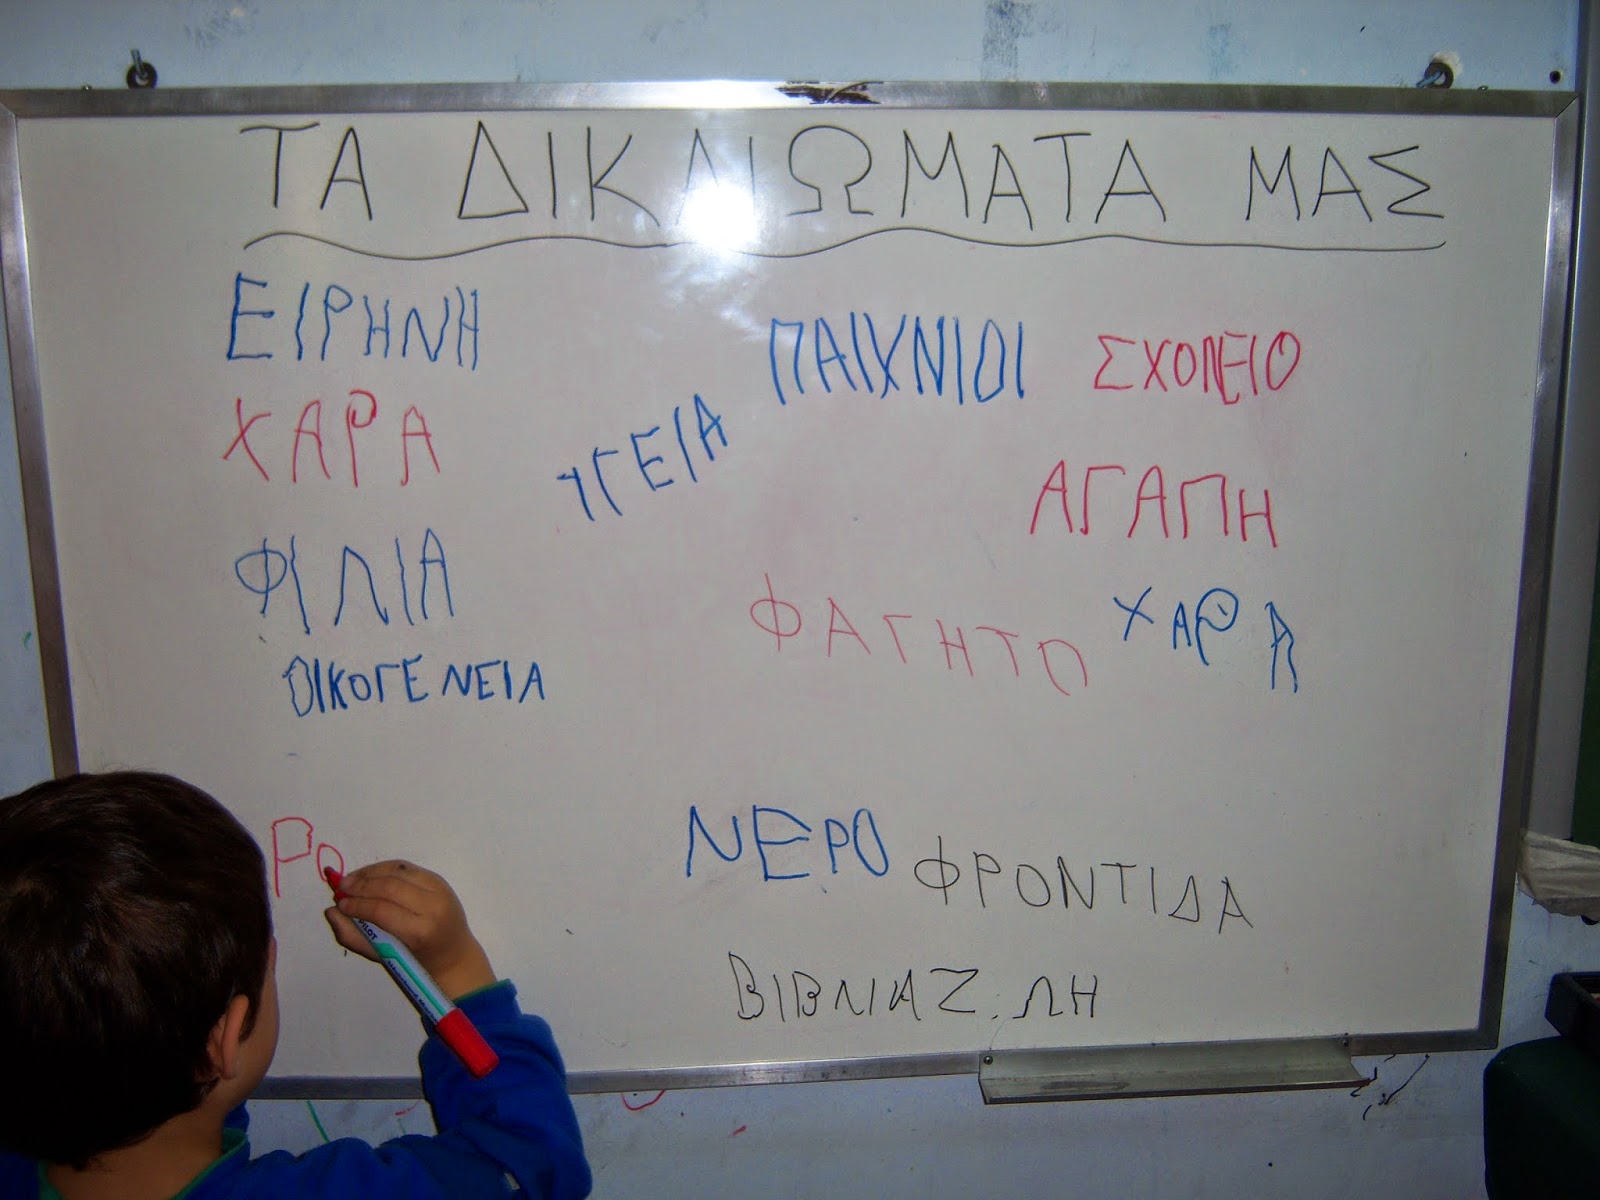 ΤΑ ΔΙΚΑΙΩΜΑΤΑ ΜΑΣ
ΕΙΡΗΝΗ
ΠΑΙΧΝΙΟΙ
ΣΧΟΛΕΙΟ
ΧΑΡΑ
ΥΓΕΙΑ
ΑΓΑΠΗ
ΦΙΛΙΑ
ΦΑΓΗΤΟ
ΧΑΡΑ
ΟΙΚΟΓΕΝΕΙΑ
ΡΟ
ΝΕΡΟ
ΦΡΟΝΤΙΔΑ
ΒΙΒΛΙΑ ΖΩΗ
PILOT